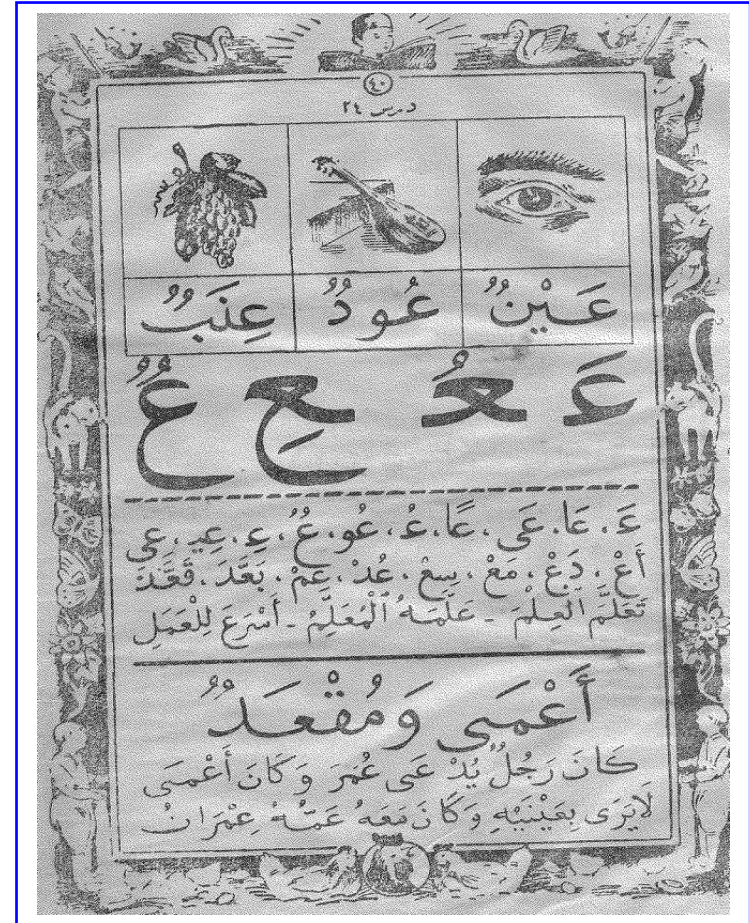 ٤٠
درس ٢٤
عَيْنٌ عُودٌ عِنَبٌ
عَـ ـعُـ ـعِ عٌ
عَ ، عَا ، عَى ، عًا ، عُ ، عُو ، عٌ ، عِ ، عِيـ ، عِى
أَعْ ، دَعْ ، مَعْ ، سِعْ ، عُدْ ، عِمْ ، بَعَّدَ ، قَعَّدَ
تَعَلَّمَ الْعِلْمَ ـ عَلَّمَهُ الْمُعَلِّمُ ـ أَسْرَعَ لِلْعَمَلِ
أَعْمَى وَمُقْعَدٌ
كَانَ رَجُلٌ يُدْعَى عُمَرَ وَكَانَ أَعْمَى
لَايَرَى بِعَيْنَيْهِ وَكَانَ مَعَهُ عَمُّهُ عِمْرَانُ